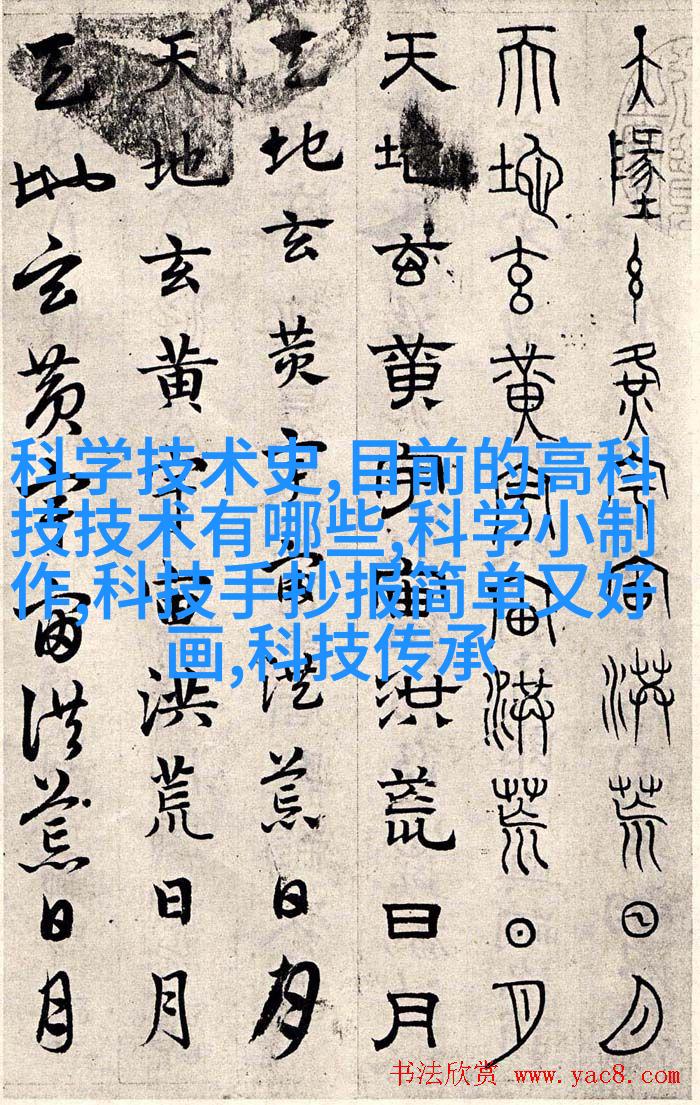 天地玄黄宇宙洪荒日月
天地玄黄宇宙洪荒日月
天地玄黄宇宙洪荒日月
天地玄黄宇宙洪荒日月
天地玄黄宇宙洪荒日月
天地玄黄宇宙洪荒日月
科学技术史,目前的高科
技技术有哪些,科学小制
作,科技手抄报简单又好
画,科技传承
书法欣赏 www.yac8.com